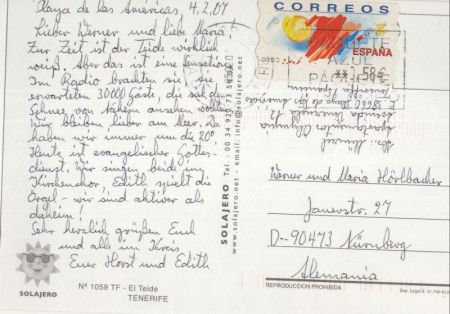 Playa de las Americas, 4.2.07
Lieber Werner und liebe Maria
Zur Zeit ist der Teide wirklich
weiß. Aber das ist eine Sensation.
Im Radio brachten sie, sie
erwarteten 30000 Gäste, die sich den
Schnee von nahem ansehen wollen.
Wir bleiben lieber am Meer. Da
haben wir immer um die 20°
Heute ist evangelischer Gottes-
dienst, wir singen beide im
Kirchenchor, Edith spielt die
Orgel - wir sind aktiver als
daheim!
Sehr herzlich grüßen Euch
und alle im Kreis
Euer Horst und Edith
SOLAJERO
Nº 1059 TF - El Teide
TENERIFE
SOLAJERO Tel.: 00 34 922
www.solajero.net email: info@solajero.net
CORREOS
ESPAÑA
** 58€
AZUL
Werner und Maria Hörlbacher
Janerstr. 27
D-90473 Nürnberg
Alemania
REPRODUCCION PROHIBIDA